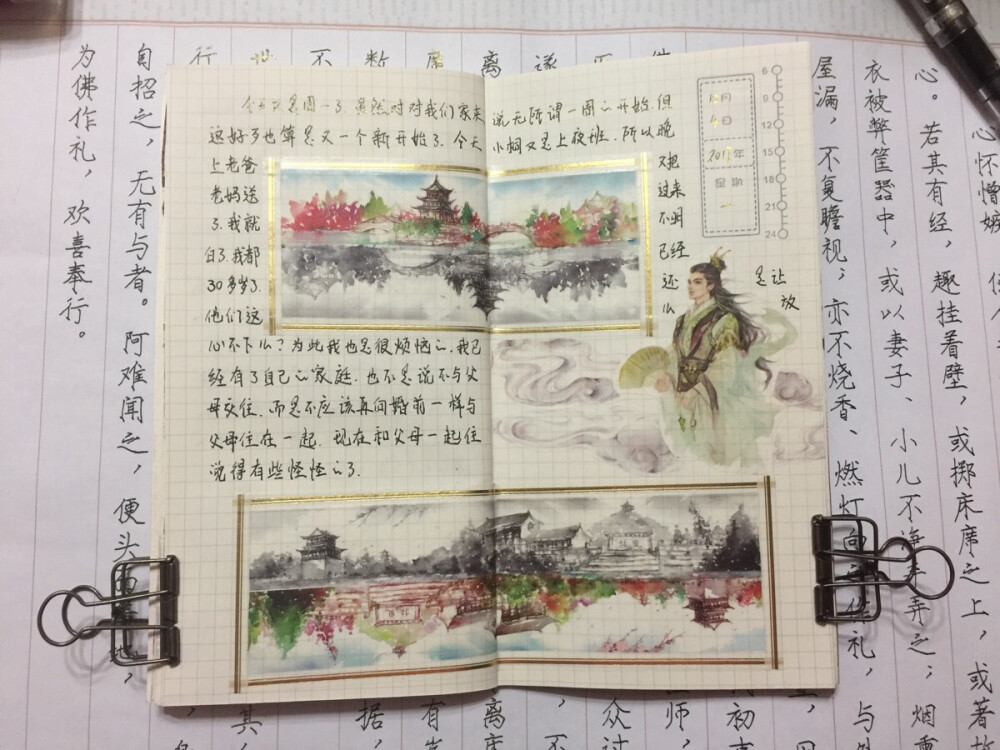 心怀憎嫉
心。若其有经，趣挂着壁，或掷床席之上，或著故
衣被弊筐器中，或以妻子、小儿不净手弄之；烟
屋漏，不复瞻视；亦不烧香、燃灯向之作礼，与
师，
众过
离床
有
据，
其
自招之，无有与者。阿难闻之，便头面
为佛作礼，欢喜奉行。
今天又是周一了.虽然对对我们家来说无所谓一周的开始.但
这好多也算是又一个新开始了.今天小桐又是上夜班.所以晚
上老爸又把
老妈送过来
了.我就不明
白了.我都已经
30多岁了.还是让
他们这么放
心不下么?为此我也是很烦恼的.我已
经有了自己的家庭.也不是说不与父
母交往.而是不应该再同婚前一样与
父母住在一起.现在和父母一起住
说得有些怪怪的了.
月
4日
2017年
星期
一
6
9
12
15
18
21
24